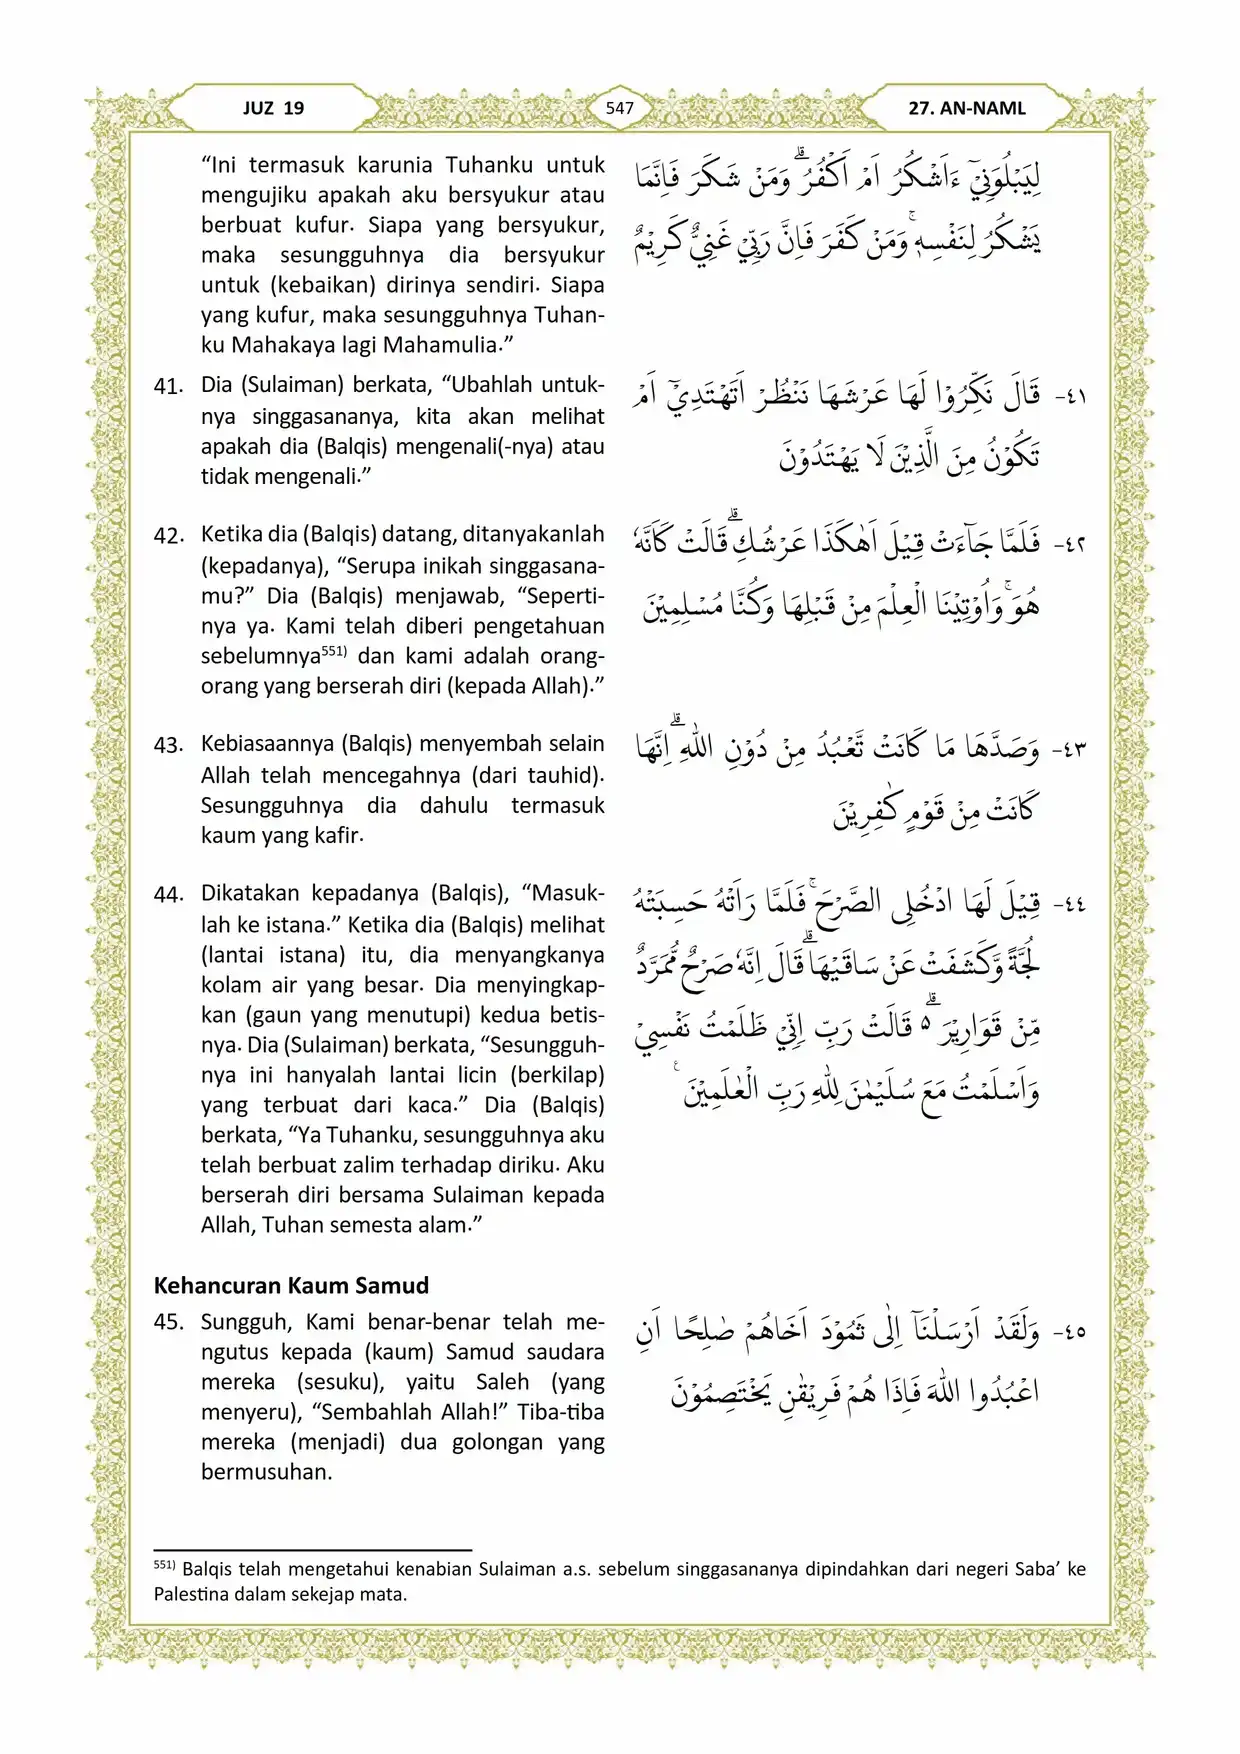 JUZ 19
547
27. AN-NAML
“Ini termasuk karunia Tuhanku untuk
mengujiku apakah aku bersyukur atau
berbuat kufur. Siapa yang bersyukur,
maka sesungguhnya dia bersyukur
untuk (kebaikan) dirinya sendiri. Siapa
yang kufur, maka sesungguhnya Tuhan-
ku Mahakaya lagi Mahamulia.”
لِيَبْلُوَنِيْٓ ءَاَشْكُرُ اَمْ اَكْفُرُۗ وَمَنْ شَكَرَ فَاِنَّمَا
يَشْكُرُ لِنَفْسِهٖۚ وَمَنْ كَفَرَ فَاِنَّ رَبِّيْ غَنِيٌّ كَرِيْمٌ
41. Dia (Sulaiman) berkata, “Ubahlah untuk-
nya singgasananya, kita akan melihat
apakah dia (Balqis) mengenali(-nya) atau
tidak mengenali.”
٤١- قَالَ نَكِّرُوْا لَهَا عَرْشَهَا نَنْظُرْ اَتَهْتَدِيْٓ اَمْ
تَكُوْنُ مِنَ الَّذِيْنَ لَا يَهْتَدُوْنَ
42. Ketika dia (Balqis) datang, ditanyakanlah
(kepadanya), “Serupa inikah singgasana-
mu?” Dia (Balqis) menjawab, “Seperti-
nya ya. Kami telah diberi pengetahuan
sebelumnya551) dan kami adalah orang-
orang yang berserah diri (kepada Allah).”
٤٢- فَلَمَّا جَاۤءَتْ قِيْلَ اَهٰكَذَا عَرْشُكِۗ قَالَتْ كَاَنَّهٗ
هُوَۚ وَاُوْتِيْنَا الْعِلْمَ مِنْ قَبْلِهَا وَكُنَّا مُسْلِمِيْنَ
43. Kebiasaannya (Balqis) menyembah selain
Allah telah mencegahnya (dari tauhid).
Sesungguhnya dia dahulu termasuk
kaum yang kafir.
٤٣- وَصَدَّهَا مَا كَانَتْ تَّعْبُدُ مِنْ دُوْنِ اللّٰهِۗ اِنَّهَا
كَانَتْ مِنْ قَوْمٍ كٰفِرِيْنَ
44. Dikatakan kepadanya (Balqis), “Masuk-
lah ke istana.” Ketika dia (Balqis) melihat
(lantai istana) itu, dia menyangkanya
kolam air yang besar. Dia menyingkap-
kan (gaun yang menutupi) kedua betis-
nya. Dia (Sulaiman) berkata, “Sesungguh-
nya ini hanyalah lantai licin (berkilap)
yang terbuat dari kaca.” Dia (Balqis)
berkata, “Ya Tuhanku, sesungguhnya aku
telah berbuat zalim terhadap diriku. Aku
berserah diri bersama Sulaiman kepada
Allah, Tuhan semesta alam.”
٤٤- قِيْلَ لَهَا ادْخُلِى الصَّرْحَۚ فَلَمَّا رَاَتْهُ حَسِبَتْهُ
لُجَّةً وَّكَشَفَتْ عَنْ سَاقَيْهَاۗ قَالَ اِنَّهٗ صَرْحٌ مُّمَرَّدٌ
مِّنْ قَوَارِيْرَ ەۗ قَالَتْ رَبِّ اِنِّيْ ظَلَمْتُ نَفْسِيْ
وَاَسْلَمْتُ مَعَ سُلَيْمٰنَ لِلّٰهِ رَبِّ الْعٰلَمِيْنَ ࣖ
Kehancuran Kaum Samud
45. Sungguh, Kami benar-benar telah me-
ngutus kepada (kaum) Samud saudara
mereka (sesuku), yaitu Saleh (yang
menyeru), “Sembahlah Allah!” Tiba-tiba
mereka (menjadi) dua golongan yang
bermusuhan.
٤٥- وَلَقَدْ اَرْسَلْنَآ اِلٰى ثَمُوْدَ اَخَاهُمْ صٰلِحًا اَنِ
اعْبُدُوا اللّٰهَ فَاِذَا هُمْ فَرِيْقٰنِ يَخْتَصِمُوْنَ
551) Balqis telah mengetahui kenabian Sulaiman a.s. sebelum singgasananya dipindahkan dari negeri Saba’ ke
Palestina dalam sekejap mata.